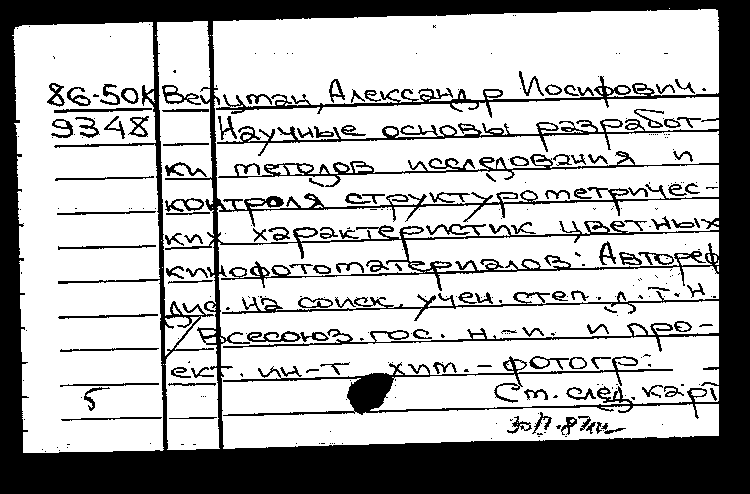 86-50К Вейцман, Александр Иосифович.
9348 Научные основы разработ-
ки методов исследования и
контроля структурометричес-
ких характеристик цветных
кинофотоматериалов: Автореф
дис. на соиск. учен. степ. д.т.н.
/Всесоюз. гос. н.-и. и про-
ект. ин-т хим.-фотогр:
5 См. след. карт